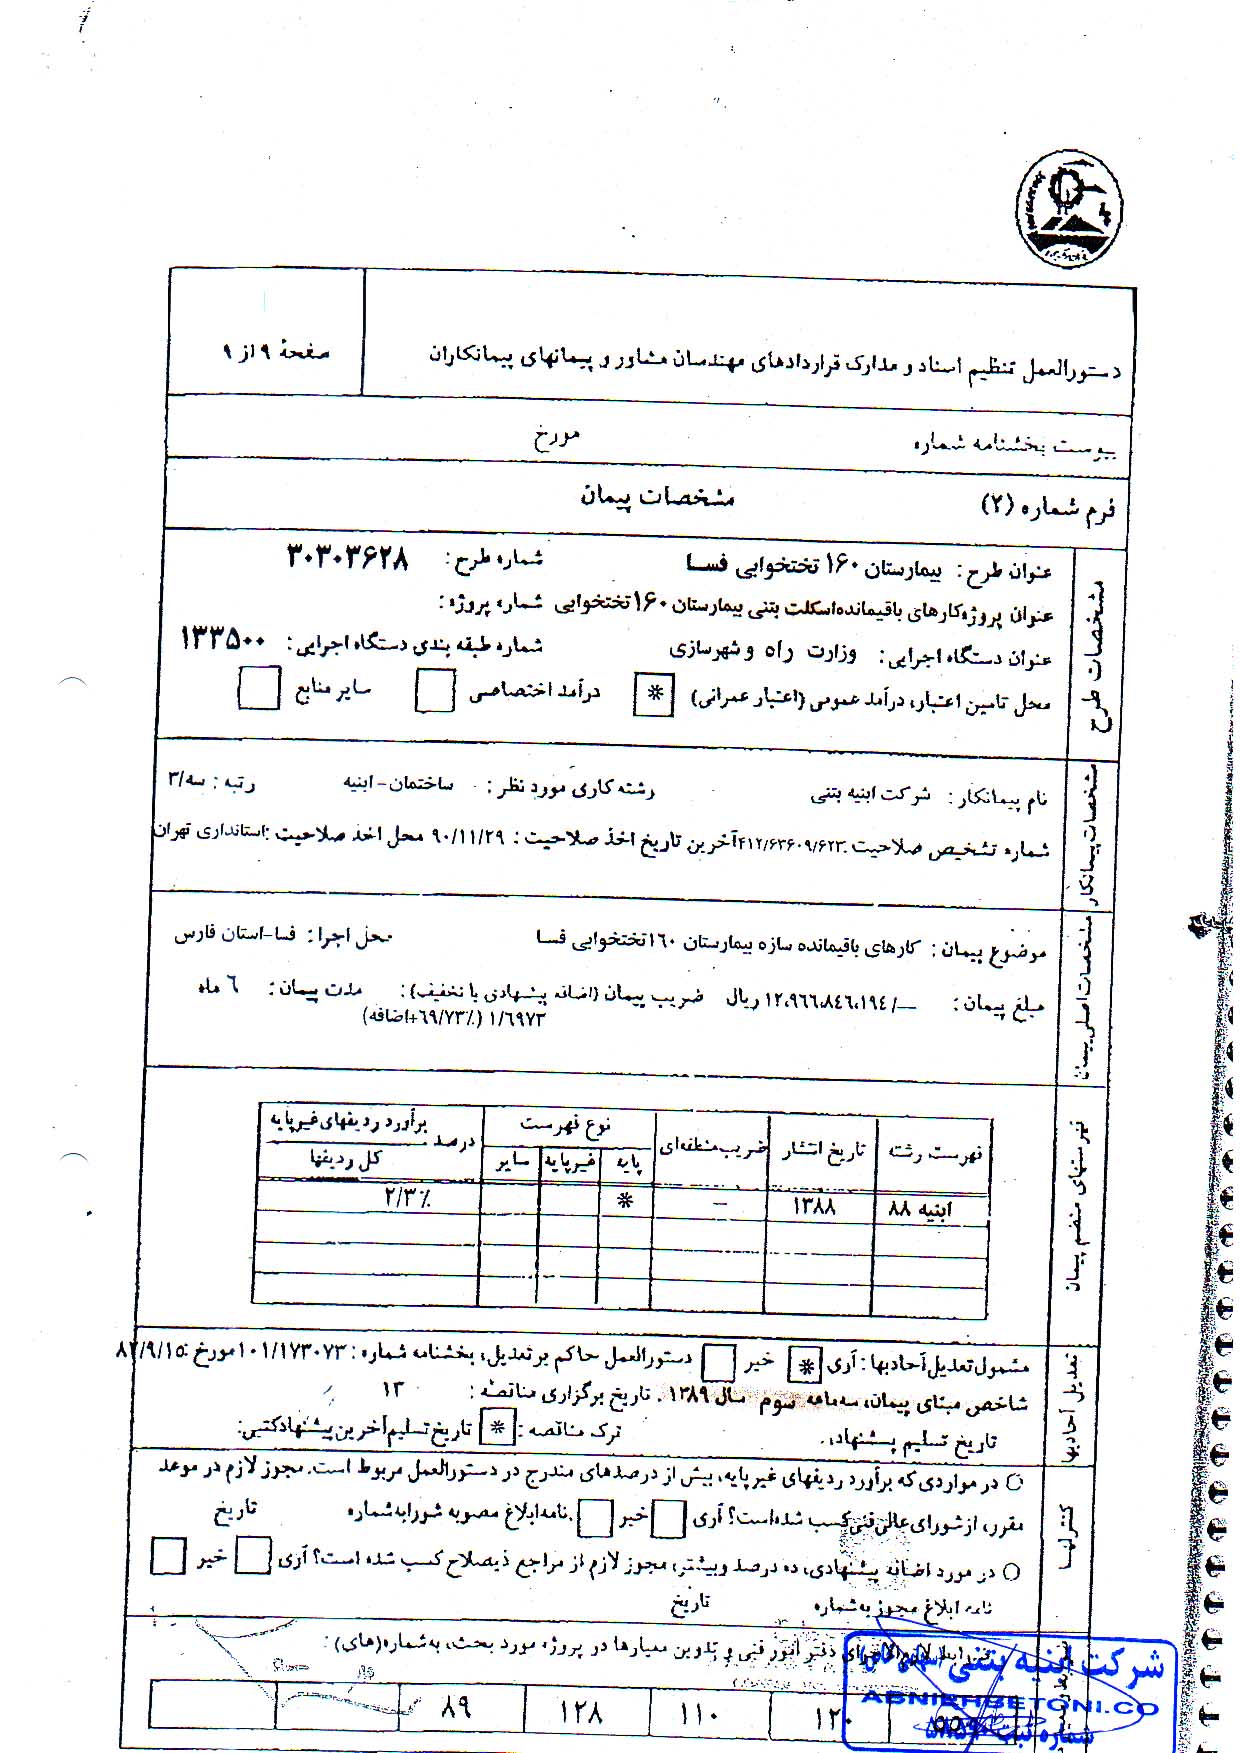 دستورالعمل تنظیم اسناد و مدارک قراردادهای مهندسان مشاور و پیمانهای پیمانکاران
صفحهٔ ۹ از ۹
پیوست بخشنامه شماره مورخ
فرم شماره (۲) مشخصات پیمان
مشخصات طرح
عنوان طرح: بیمارستان ۱۶۰ تختخوابی فسا شماره طرح: ۳۰۳۰۳۶۲۸
عنوان پروژه کارهای باقیمانده اسکلت بتنی بیمارستان ۱۶۰ تختخوابی شماره پروژه:
عنوان دستگاه اجرایی: وزارت راه و شهرسازی شماره طبقه بندی دستگاه اجرایی: ۱۳۳۵۰۰
محل تامین اعتبار، درآمد عمومی (اعتبار عمرانی) * درآمد اختصاصی سایر منابع
مشخصات پیمانکار
نام پیمانکار: شرکت ابنیه بتنی رشته کاری مورد نظر: ساختمان-ابنیه رتبه: سه/۳
شماره تشخیص صلاحیت: ۴۱۲/۶۳۶۰۹/۶۲۳ آخرین تاریخ اخذ صلاحیت: ۹۰/۱۱/۲۹ محل اخذ صلاحیت: استانداری تهران
مشخصات اصلی پیمان
موضوع پیمان: کارهای باقیمانده سازه بیمارستان ۱۶۰ تختخوابی فسا محل اجرا: فسا-استان فارس
مبلغ پیمان: ۱۲،۹۶۶،۸۴۶،۱۹۴/— ریال ضریب پیمان (اضافه پیشنهادی یا تخفیف): مدت پیمان: ۶ ماه
۱/۶۹۷۳ (۶۹/۷۳٪+اضافه)
فهرستهای منضم پیمان
فهرست رشته تاریخ انتشار ضریب منطقه‌ای نوع فهرست درصد برآورد ردیفهای غیرپایه
پایه غیرپایه سایر کل ردیفها
ابنیه ۸۸ ۱۳۸۸ – * ۲/۳٪
تعدیل آحادبها
مشمول تعدیل آحادبها: آری * خیر دستورالعمل حاکم بر تعدیل، بخشنامه شماره: ۱۰۱/۱۷۳۰۷۳ مورخ: ۸۲/۹/۱۵
شاخص مبنای پیمان، سه‌ماهه سوم سال ۱۳۸۹. تاریخ برگزاری مناقصه: ۱۳
تاریخ تسلیم پیشنهاد، ترک مناقصه: * تاریخ تسلیم آخرین پیشنهاد کتبی:
کنترلها
○ در مواردی که برآورد ردیفهای غیرپایه، بیش از درصدهای مندرج در دستورالعمل مربوط است. مجوز لازم در موعد
مقرر، از شورای عالی فنی کسب شده‌است؟ آری خیر .نامه ابلاغ مصوبه شورا به شماره تاریخ
○ در مورد اضافه پیشنهادی، ده درصد و بیشتر، مجوز لازم از مراجع ذیصلاح کسب شده است؟ آری خیر
نامه ابلاغ مجوز به شماره تاریخ
لازم الاجرای دفتر امور فنی و تدوین معیارها در پروژه مورد بحث، به‌شماره(های):
۱۲۰ ۱۱۰ ۱۲۸ ۸۹
شرکت ابنیه بتنی
ABNIEHBETONI.CO
شماره ثبت